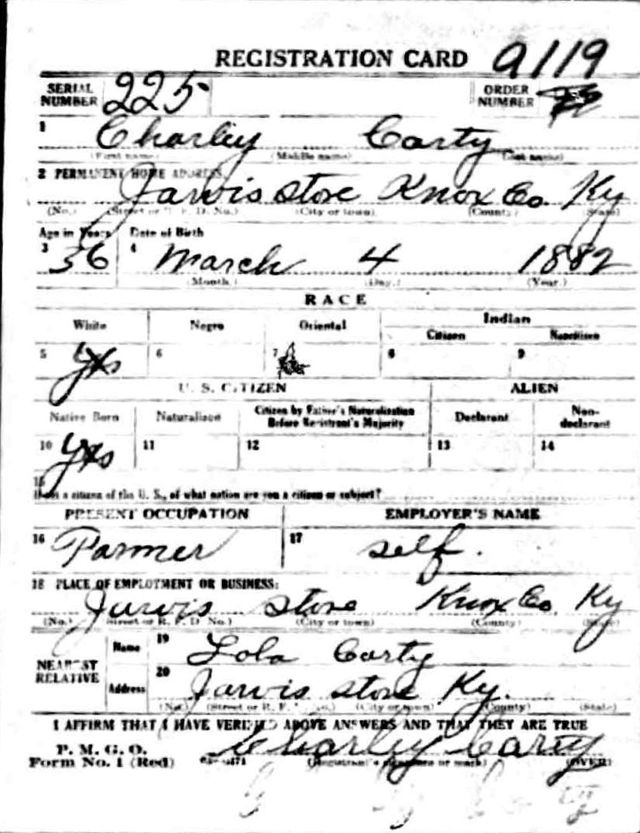 REGISTRATION CARD 9119
SERIAL NUMBER 225 ORDER NUMBER
1 Charley Carty
(First name) (Middle name) (Last name)
2 PERMANENT HOME ADDRESS
Jarvis Store Knox Co. Ky
(No.) (Street or R. F. D. No.) (City or town) (County) (State)
Age in Years Date of Birth
3 36 4 March 4 1882
(Month.) (Day.) (Year.)
RACE
White Negro Oriental Indian
Citizen Noncitizen
5 Yes 6 7 8 9
U. S. CITIZEN ALIEN
Native Born Naturalized Citizen by Father's Naturalization Before Registrant's Majority Declarant Non-declarant
10 Yes 11 12 13 14
15
If not a citizen of the U. S., of what nation are you a citizen or subject?
PRESENT OCCUPATION EMPLOYER'S NAME
16 Farmer 17 self.
18 PLACE OF EMPLOYMENT OR BUSINESS:
Jarvis Store Knox Co. Ky
(No.) (Street or R. F. D. No.) (City or town) (County) (State)
NEAREST RELATIVE Name 19 Lola Carty
Address 20 Jarvis Store Ky.
(No.) (Street or R. F. D. No.) (City or town) (County) (State)
I AFFIRM THAT I HAVE VERIFIED ABOVE ANSWERS AND THAT THEY ARE TRUE
P. M. G. O.
Form No. 1 (Red) Charley Carty
(Registrant's signature or mark) (OVER)